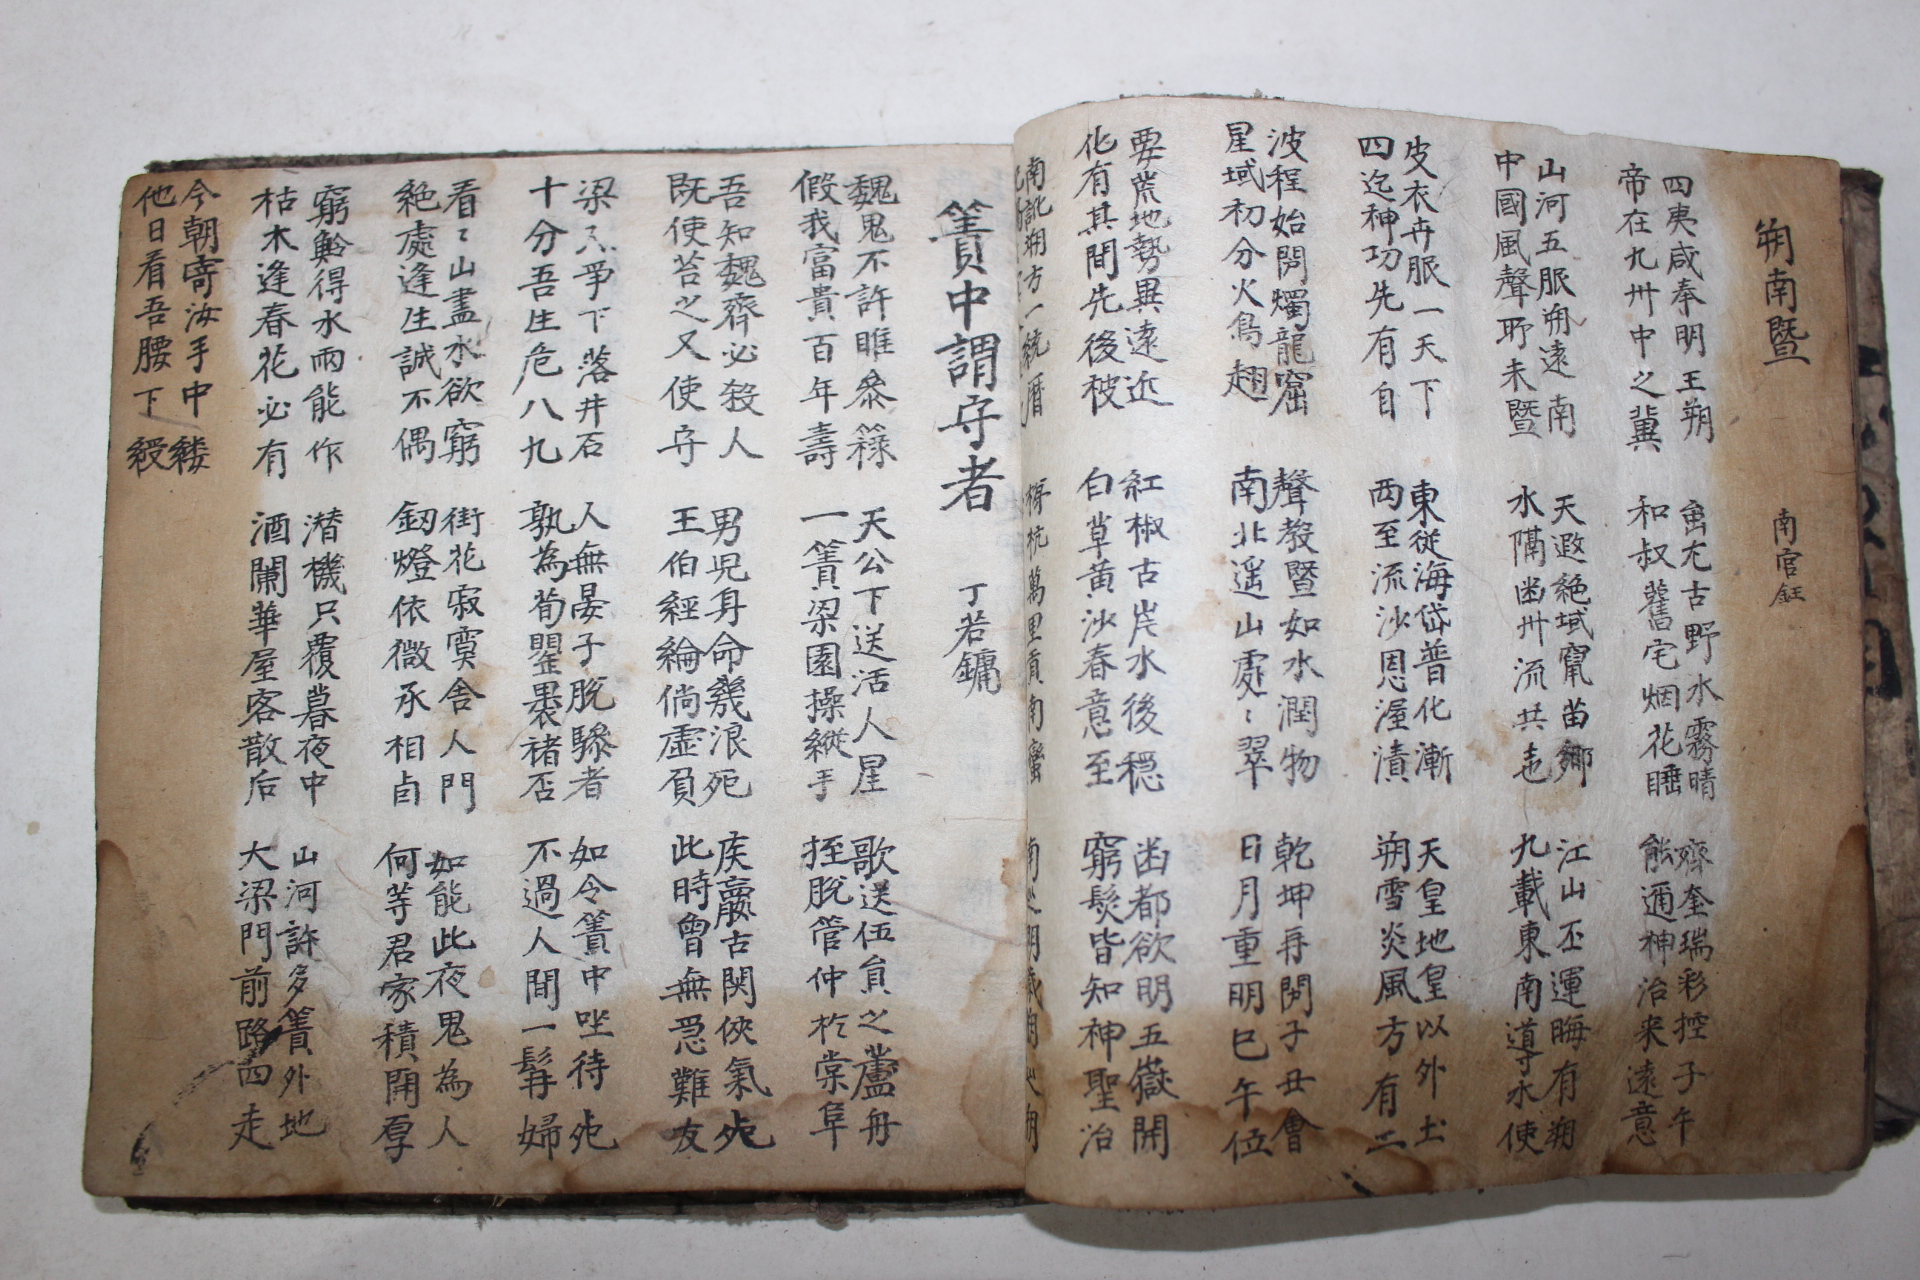 朔南暨
南宮鈺
四夷咸奉明王朔
帝在九州中之冀
古野水霧晴
和叔舊宅烟花睡
奎瑞彩控子午
神治来遠意
山河五服朔遠南
中國風聲所未暨
天遐絶域竄苗鄉
水隔幽州流共
江山丕運晦有朔
九載東南導水使
皮衣卉服一天下
四迄神功先有自
東從海岱普化漸
西至流沙恩渥漬
天皇地皇以外土
朔雪炎風方有二
波程始開燭龍窟
星域初分火鳥翅
聲教暨如水潤物
南北遥山處〻翠
乾坤再開子丑會
日月重明巳午位
要荒地勢異遠近
化有其間先後被
紅椒古岸水後穏
白草黃沙春意至
幽都欲明五嶽開
窮髮皆知神聖治
南訛朔方一統曆
梯杭萬里貢南蠻
簀中謂守者
丁若鏞
魏鬼不許睢叅籙
假我富貴百年壽
天公下送活人星
一簀梁園操縱手
歌送伍員之蘆舟
挃脫管仲於棠阜
吾知魏齊必殺人
既使苔之又使守
男児身命幾浪死
王伯經綸倘虛負
侯嬴古関俠氣死
此時曾無急難友
梁〻爭下落井石
十分吾生危八九
人無晏子脫驂者
孰為荀罃褁褚否
如令簀中坐待死
不過人間一髯婦
看〻山盡水欲窮
絶處逢生誠不偶
街花寂寞舍人門
釰燈依微承相卣
如能此夜鬼為人
何等君家積陰厚
窮鱗得水雨能作
枯木逢春花必有
潜機只覆暮夜中
酒闌華屋客散后
山河許多簀外地
大梁門前路四走
今朝寄汝手中縷
他日看吾腰下綬